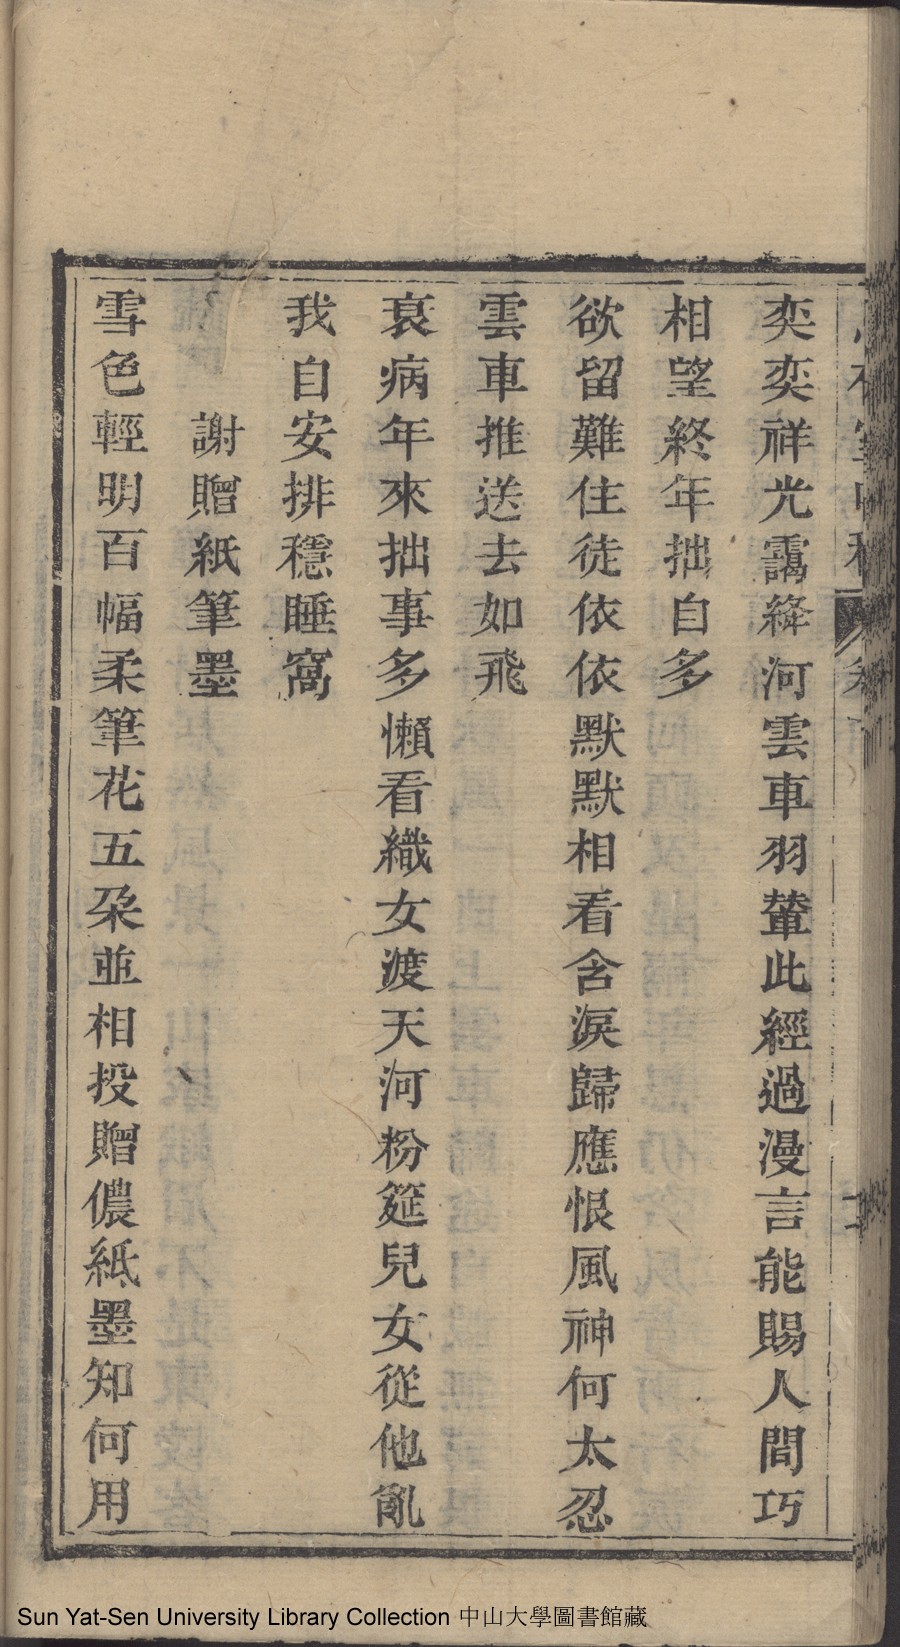 奕奕祥光靄絳河雲車羽輦此經過漫言能賜人間巧
相望終年拙自多
欲留難住徒依依默默相看含淚歸應恨風神何太忍
雲車推送去如飛
衰病年來拙事多懶看織女渡天河粉筵兒女從他亂
我自安排穩睡窩
謝贈紙筆墨
雪色輕明百幅柔筆花五朶並相投贈儂紙墨知何用
Sun Yat-Sen University Library Collection 中山大學圖書館藏